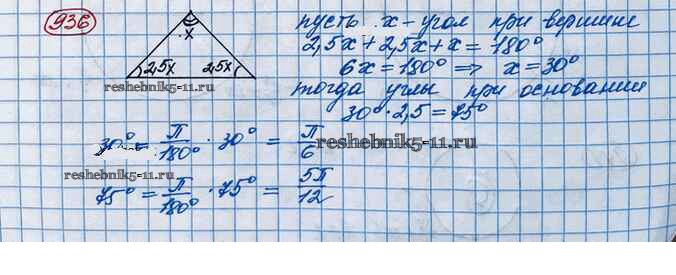 936
x
2,5x 2,5x
reshebnik5-11.ru
пусть x - угол при вершине
2,5x + 2,5x + x = 180°
6x = 180° => x = 30°
тогда углы при основании
30° · 2,5 = 75°
30° = π/180° · 30° = π/6
reshebnik5-11.ru
75° = π/180° · 75° = 5π/12
reshebnik5-11.ru